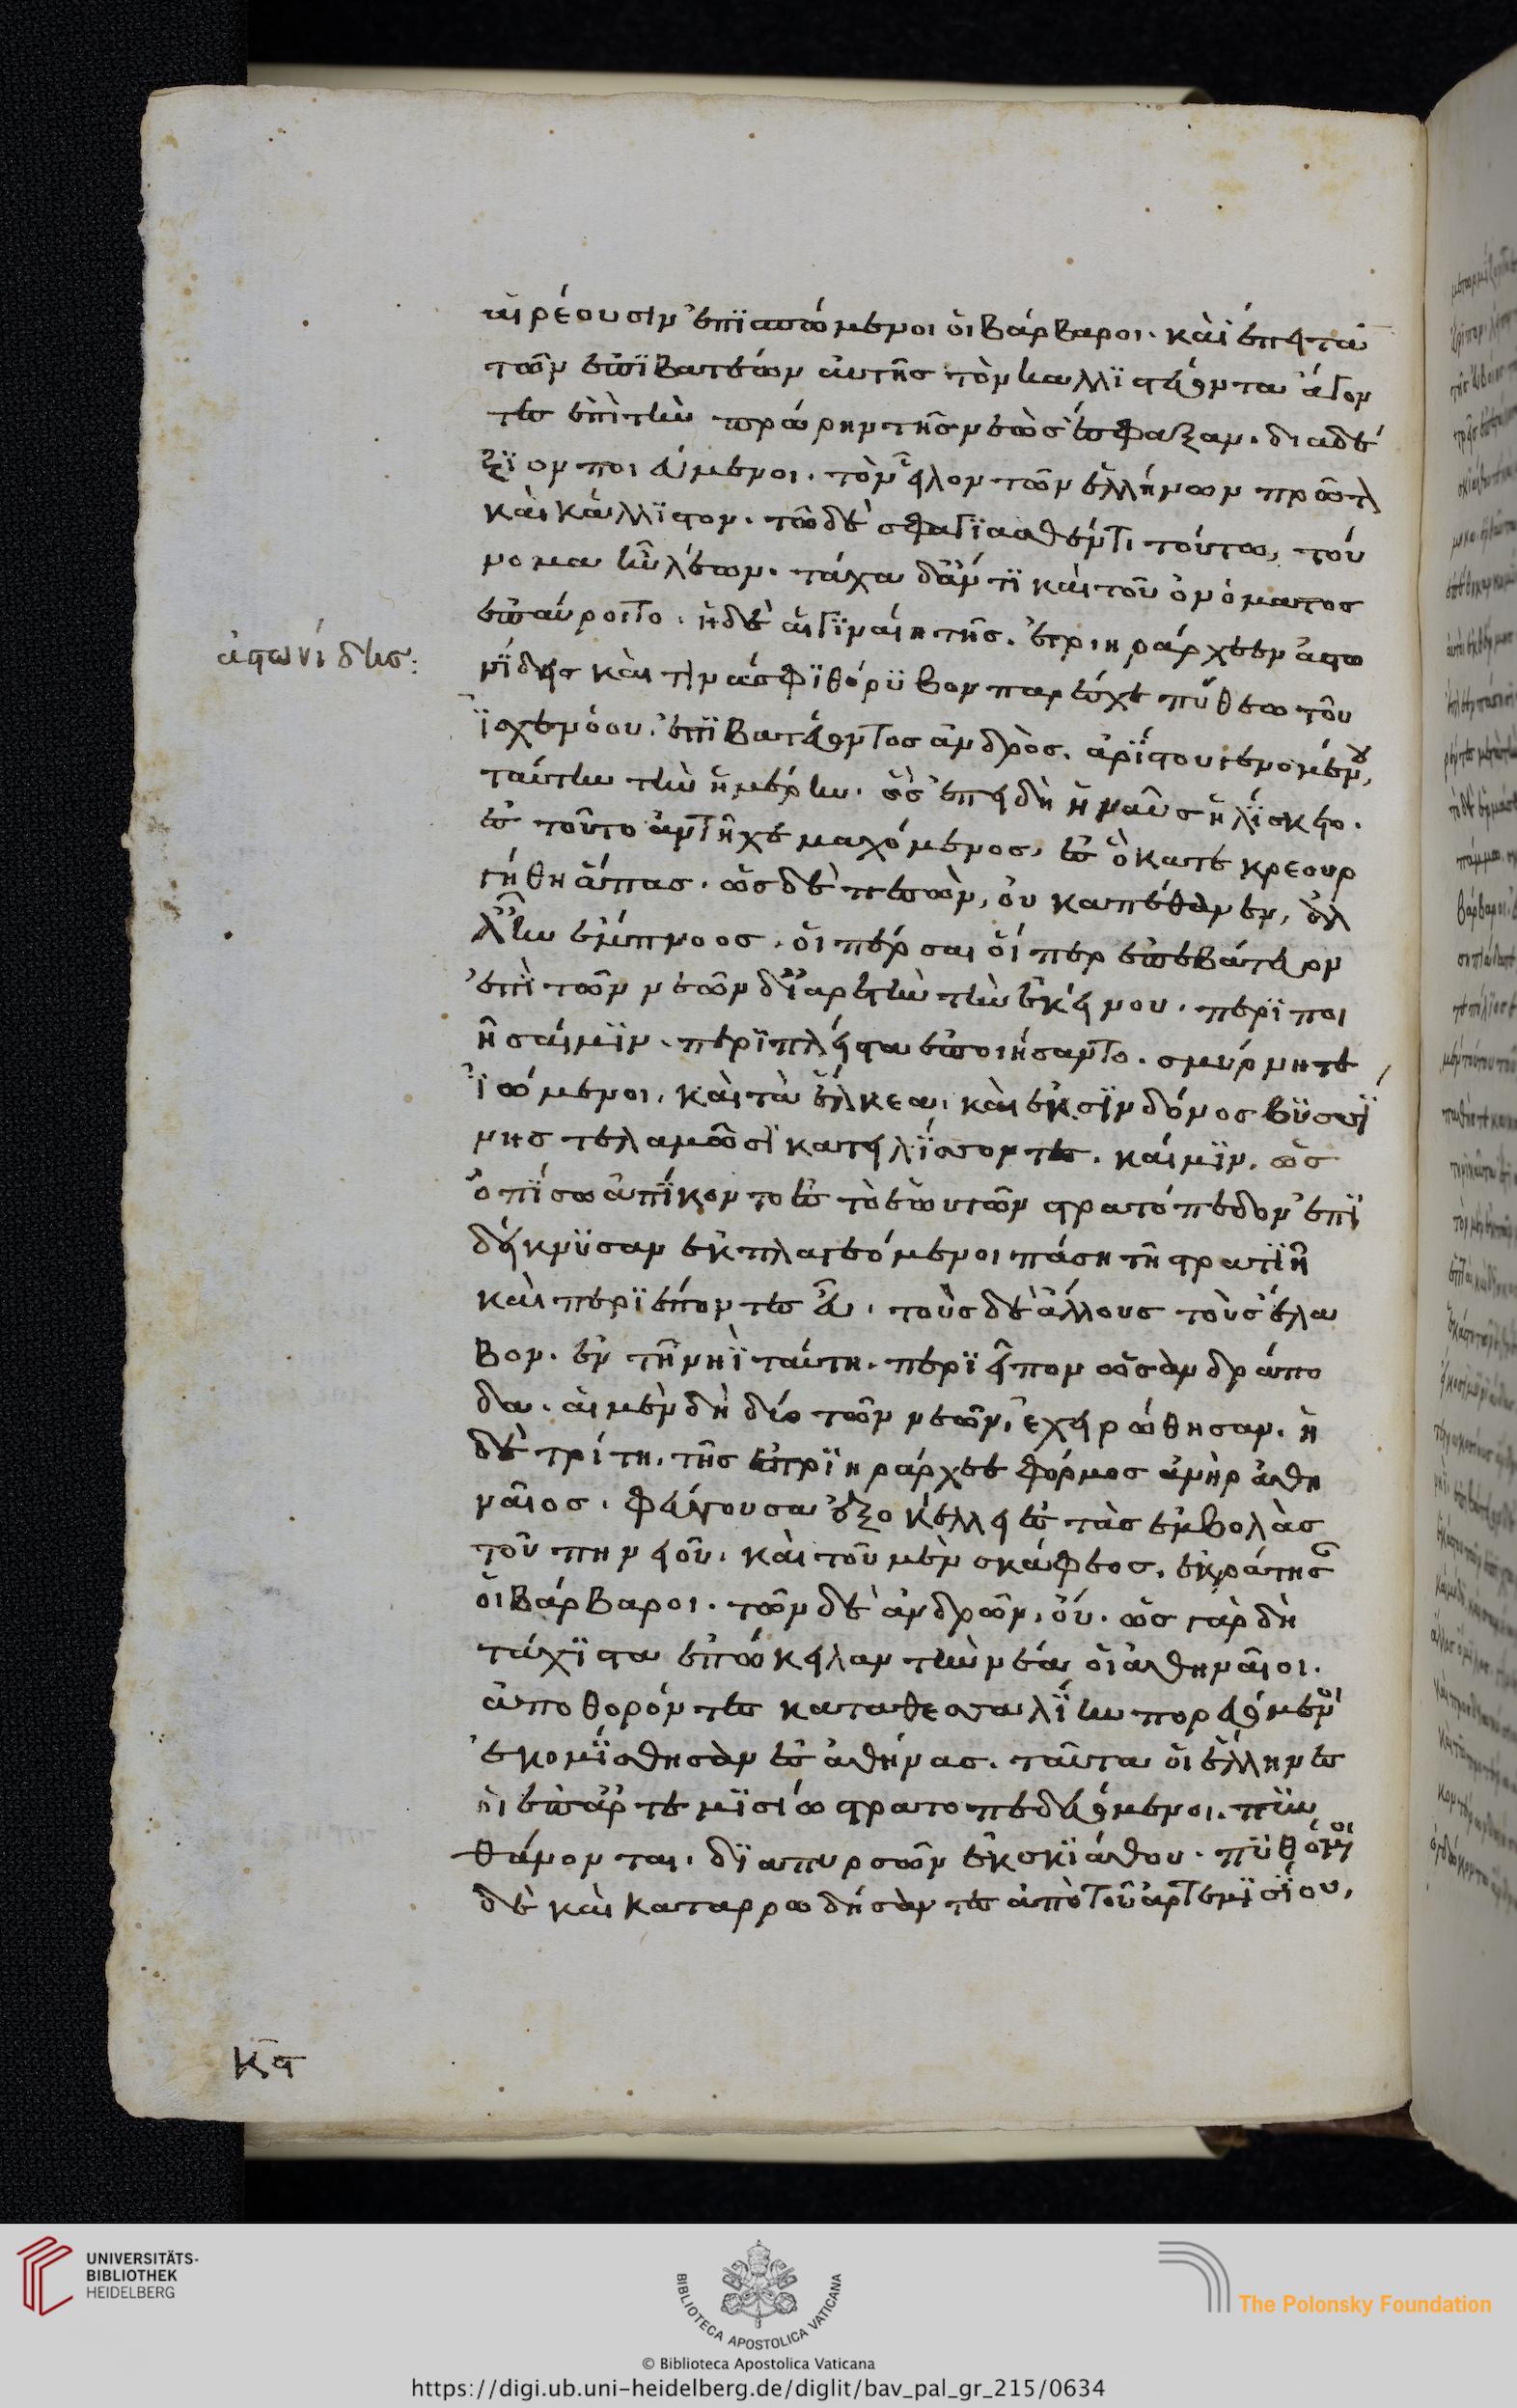 αἱρέουσιν ἐπισπόμενοι οἱ βάρβαροι. καὶ ἔπειτα
τῶν ἐπιβατέων αὐτῆς τὸν καλλιστεύοντα ἄγον
τες ἐπὶ τὴν πρώρην τῆς νεὼς ἔσφαξαν. διαδέ
ξιον ποιεύμενοι. τὸν εἷλον τῶν ἑλλήνων πρῶτ
καὶ κάλλιστον. τῶ δὲ σφαγιασθέντι τούτω, τού
νομα ἦν λέων. τάχα δ' ἄν τι καὶ τοῦ ὀνόματος
ἐπαύροιτο. ἡ δὲ αἰγιναίη τῆς. ἐτριηράρχεεν ἀστω
νίδης καὶ τινά σφι θόρυβον παρέσχε πύθεω τοῦ
ἰσχενόου. ἐπιβατεύοντος ἀνδρὸς. ἀρίστου γενομένου,
ταύτην τὴν ἡμέρην. ὃς ἐπειδὴ ἡ ναῦς ἡλίσκετο.
ἐς τοῦτο ἀντῆχε μαχόμενος, ἐς ὃ κατεκρεουρ
γήθη ἅπας. ὡς δὲ πεσὼν, οὐκ ἀπέθανεν, ἀλ
λ' ἦν ἔμπνοος. οἱ πέρσαι οἵπερ ἐπεβάτευον
ἐπὶ τῶν νεῶν δι' ἀρετὴν τὴν ἐκείνου. περιποι
ῆσαί μιν. περὶ πλείστα ἐποιήσαντο. σμύρνη τε
ἰώμενοι. καὶ τὰ ἕλκεα. καὶ ἐκ σινδόνος βυσσί
νης τελαμῶσι κατειλίσσοντες. καί μιν. ὡς
ὀπίσω ἀπίκοντο ἐς τὸ ἑωυτῶν στρατόπεδον ἐπι
δείκνυσαν ἐκπλαγεόμενοι πάση τῆ στρατιῆ
καὶ περιέποντες εὖ. τοὺς δὲ ἄλλους τοὺς ἔλα
βον. ἐν τῆ νηῒ ταύτη. περιεῖπον ὡς ἀνδράπο
δα. αἱ μὲν δὴ δύο τῶν νεῶν, ἐχειρώθησαν. ἡ
δὲ τρίτη. τῆς ἐτριηράρχεε φόρμος ἀνὴρ ἀθη
ναῖος. φεύγουσα ἐξοκέλλει ἐς τὰς ἐμβολὰς
τοῦ πηνειοῦ. καὶ τοῦ μὲν σκάφεος. ἐκράτησαν
οἱ βάρβαροι. τῶν δὲ ἀνδρῶν, οὔ. ὡς γὰρ δὴ
τάχιστα ἐπώκειλαν τὴν νέα οἱ ἀθηναῖοι.
ἀποθορόντες κατα θεσσαλίην πορευόμενοι
ἐκομίσθησαν ἐς ἀθήνας. ταῦτα οἱ ἕλληνες
οἱ ἐπ' ἀρτεμισίω στρατοπεδευόμενοι. πυν
θάνονται. διὰ πυρσῶν ἐκ σκιάθου. πυθόμενοι
δὲ καὶ καταρρωδήσαντες ἀπὸ τοῦ ἀρτεμισίου,
ἀστωνίδης:
κϛ
UNIVERSITÄTS-
BIBLIOTHEK
HEIDELBERG
BIBLIOTECA APOSTOLICA VATICANA
The Polonsky Foundation
© Biblioteca Apostolica Vaticana
https://digi.ub.uni-heidelberg.de/diglit/bav_pal_gr_215/0634